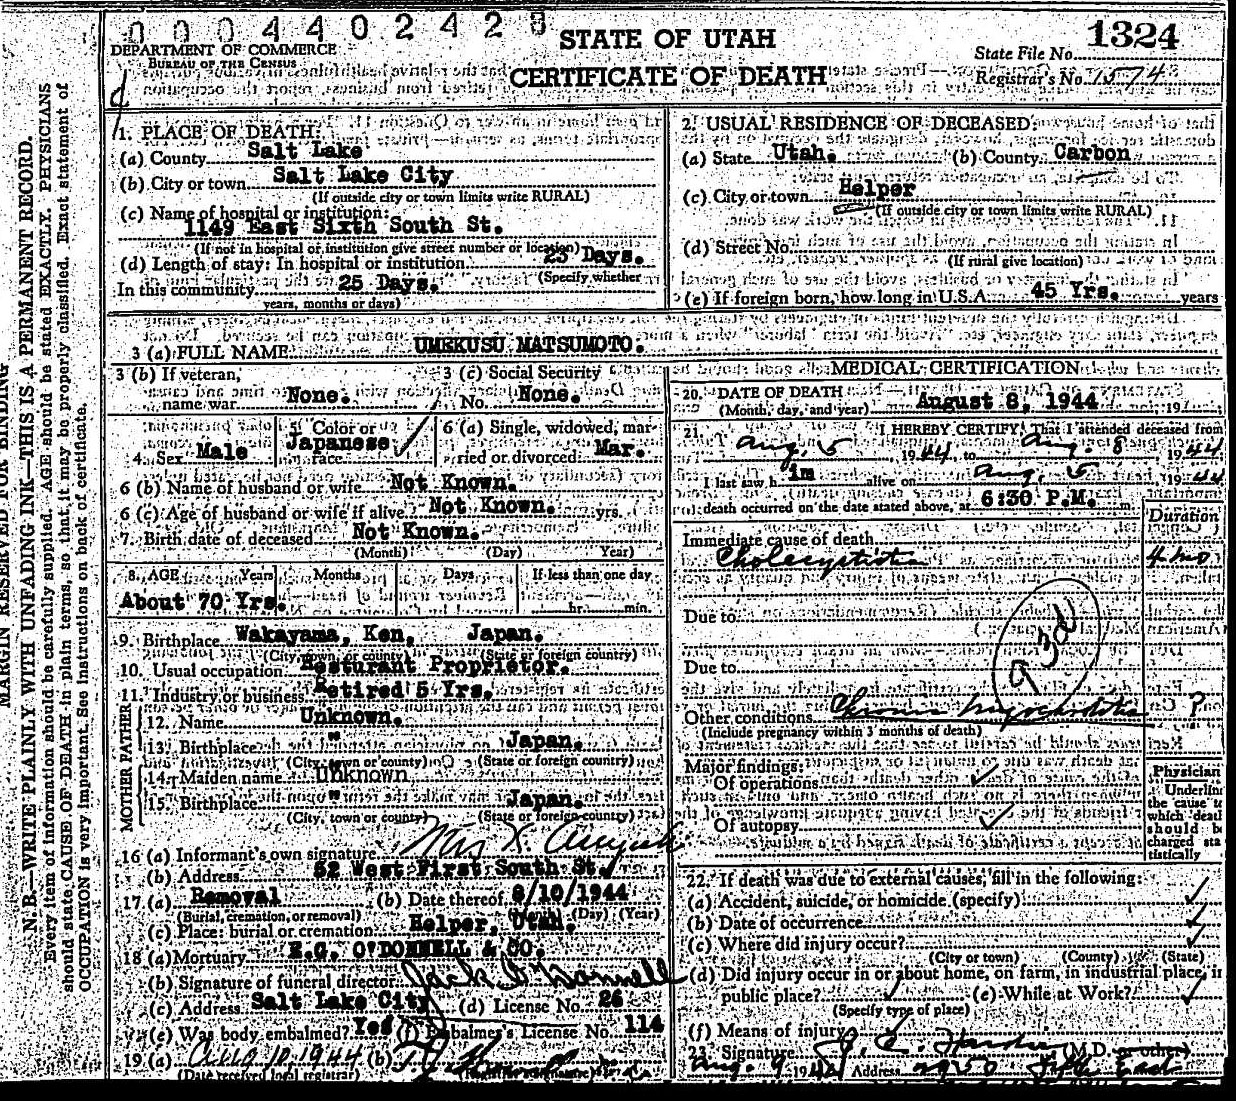 0004402428
STATE OF UTAH
CERTIFICATE OF DEATH
DEPARTMENT OF COMMERCE
BUREAU OF THE CENSUS
State File No. 1324
Registrar's No. 1574
MARGIN RESERVED FOR BINDING
N. B.—WRITE PLAINLY WITH UNFADING INK—THIS IS A PERMANENT RECORD.
Every item of information should be carefully supplied. AGE should be stated EXACTLY. PHYSICIANS
should state CAUSE OF DEATH in plain terms, so that it may be properly classified. Exact statement of
OCCUPATION is very important. See instructions on back of certificate.
1. PLACE OF DEATH:
(a) County Salt Lake
(b) City or town Salt Lake City
(If outside city or town limits write RURAL)
(c) Name of hospital or institution:
1149 East Sixth South St.
(If not in hospital or institution give street number or location)
(d) Length of stay: In hospital or institution 25 Days.
(Specify whether
In this community 25 Days.
years, months or days)
2. USUAL RESIDENCE OF DECEASED:
(a) State Utah. (b) County Carbon
(c) City or town Helper
(If outside city or town limits write RURAL)
(d) Street No.
(If rural give location)
(e) If foreign born, how long in U.S.A. 45 Yrs. years
3 (a) FULL NAME UMEKUSU MATSUMOTO.
3 (b) If veteran, name war None.
3 (c) Social Security No. None.
4. Sex Male
5. Color or race Japanese
6 (a) Single, widowed, married or divorced Mar.
6 (b) Name of husband or wife Not Known.
6 (c) Age of husband or wife if alive Not Known. yrs.
7. Birth date of deceased Not Known.
(Month) (Day) Year)
8. AGE Years Months Days If less than one day
About 70 Yrs. hr. min.
9. Birthplace Wakayama, Ken, Japan.
(City, town, or county) (State or foreign country)
10. Usual occupation Resturant Proprietor.
11. Industry or business Retired 5 Yrs.
FATHER
12. Name Unknown.
13. Birthplace " Japan.
(City, town or county) (State or foreign country)
MOTHER
14. Maiden name Unknown
15. Birthplace " Japan.
(City, town or county) (State or foreign country)
16 (a) Informant's own signature Mrs K.
(b) Address 52 West First South St.
17. (a) Removal (b) Date thereof 8/10/1944
(Burial, cremation, or removal) (Month) (Day) (Year)
(c) Place: burial or cremation Helper, Utah.
18 (a) Mortuary E.G. O'DONNELL & CO.
(b) Signature of funeral director Jack O'Donnell
(c) Address Salt Lake City (d) License No. 26
(e) Was body embalmed? Yes (f) Embalmer's License No. 114
19. (a) Aug 10, 1944 (b)
(Date received local registrar)
MEDICAL CERTIFICATION
20. DATE OF DEATH
(Month, day, and year) August 8, 1944 , 19
21. I HEREBY CERTIFY, That I attended deceased from
Aug. 5 1944, to Aug. 8 1944
I last saw him alive on Aug. 5 1944
death occurred on the date stated above, at 6:30 P.M. m.
Duration
Immediate cause of death
Cholecystitis 4 mo
Due to
Due to
Other conditions Chronic Myocarditis ?
(Include pregnancy within 3 months of death)
Major findings:
Of operations
Of autopsy
Physician
Underline
the cause to
which death
should be
charged sta
tistically
22. If death was due to external causes, fill in the following:
(a) Accident, suicide, or homicide (specify)
(b) Date of occurrence
(c) Where did injury occur?
(City or town) (County) (State)
(d) Did injury occur in or about home, on farm, in industrial place, in
public place? (e) While at Work?
(Specify type of place)
(f) Means of injury
23. Signature (M.D. or other)
Aug. 9 1944 Address